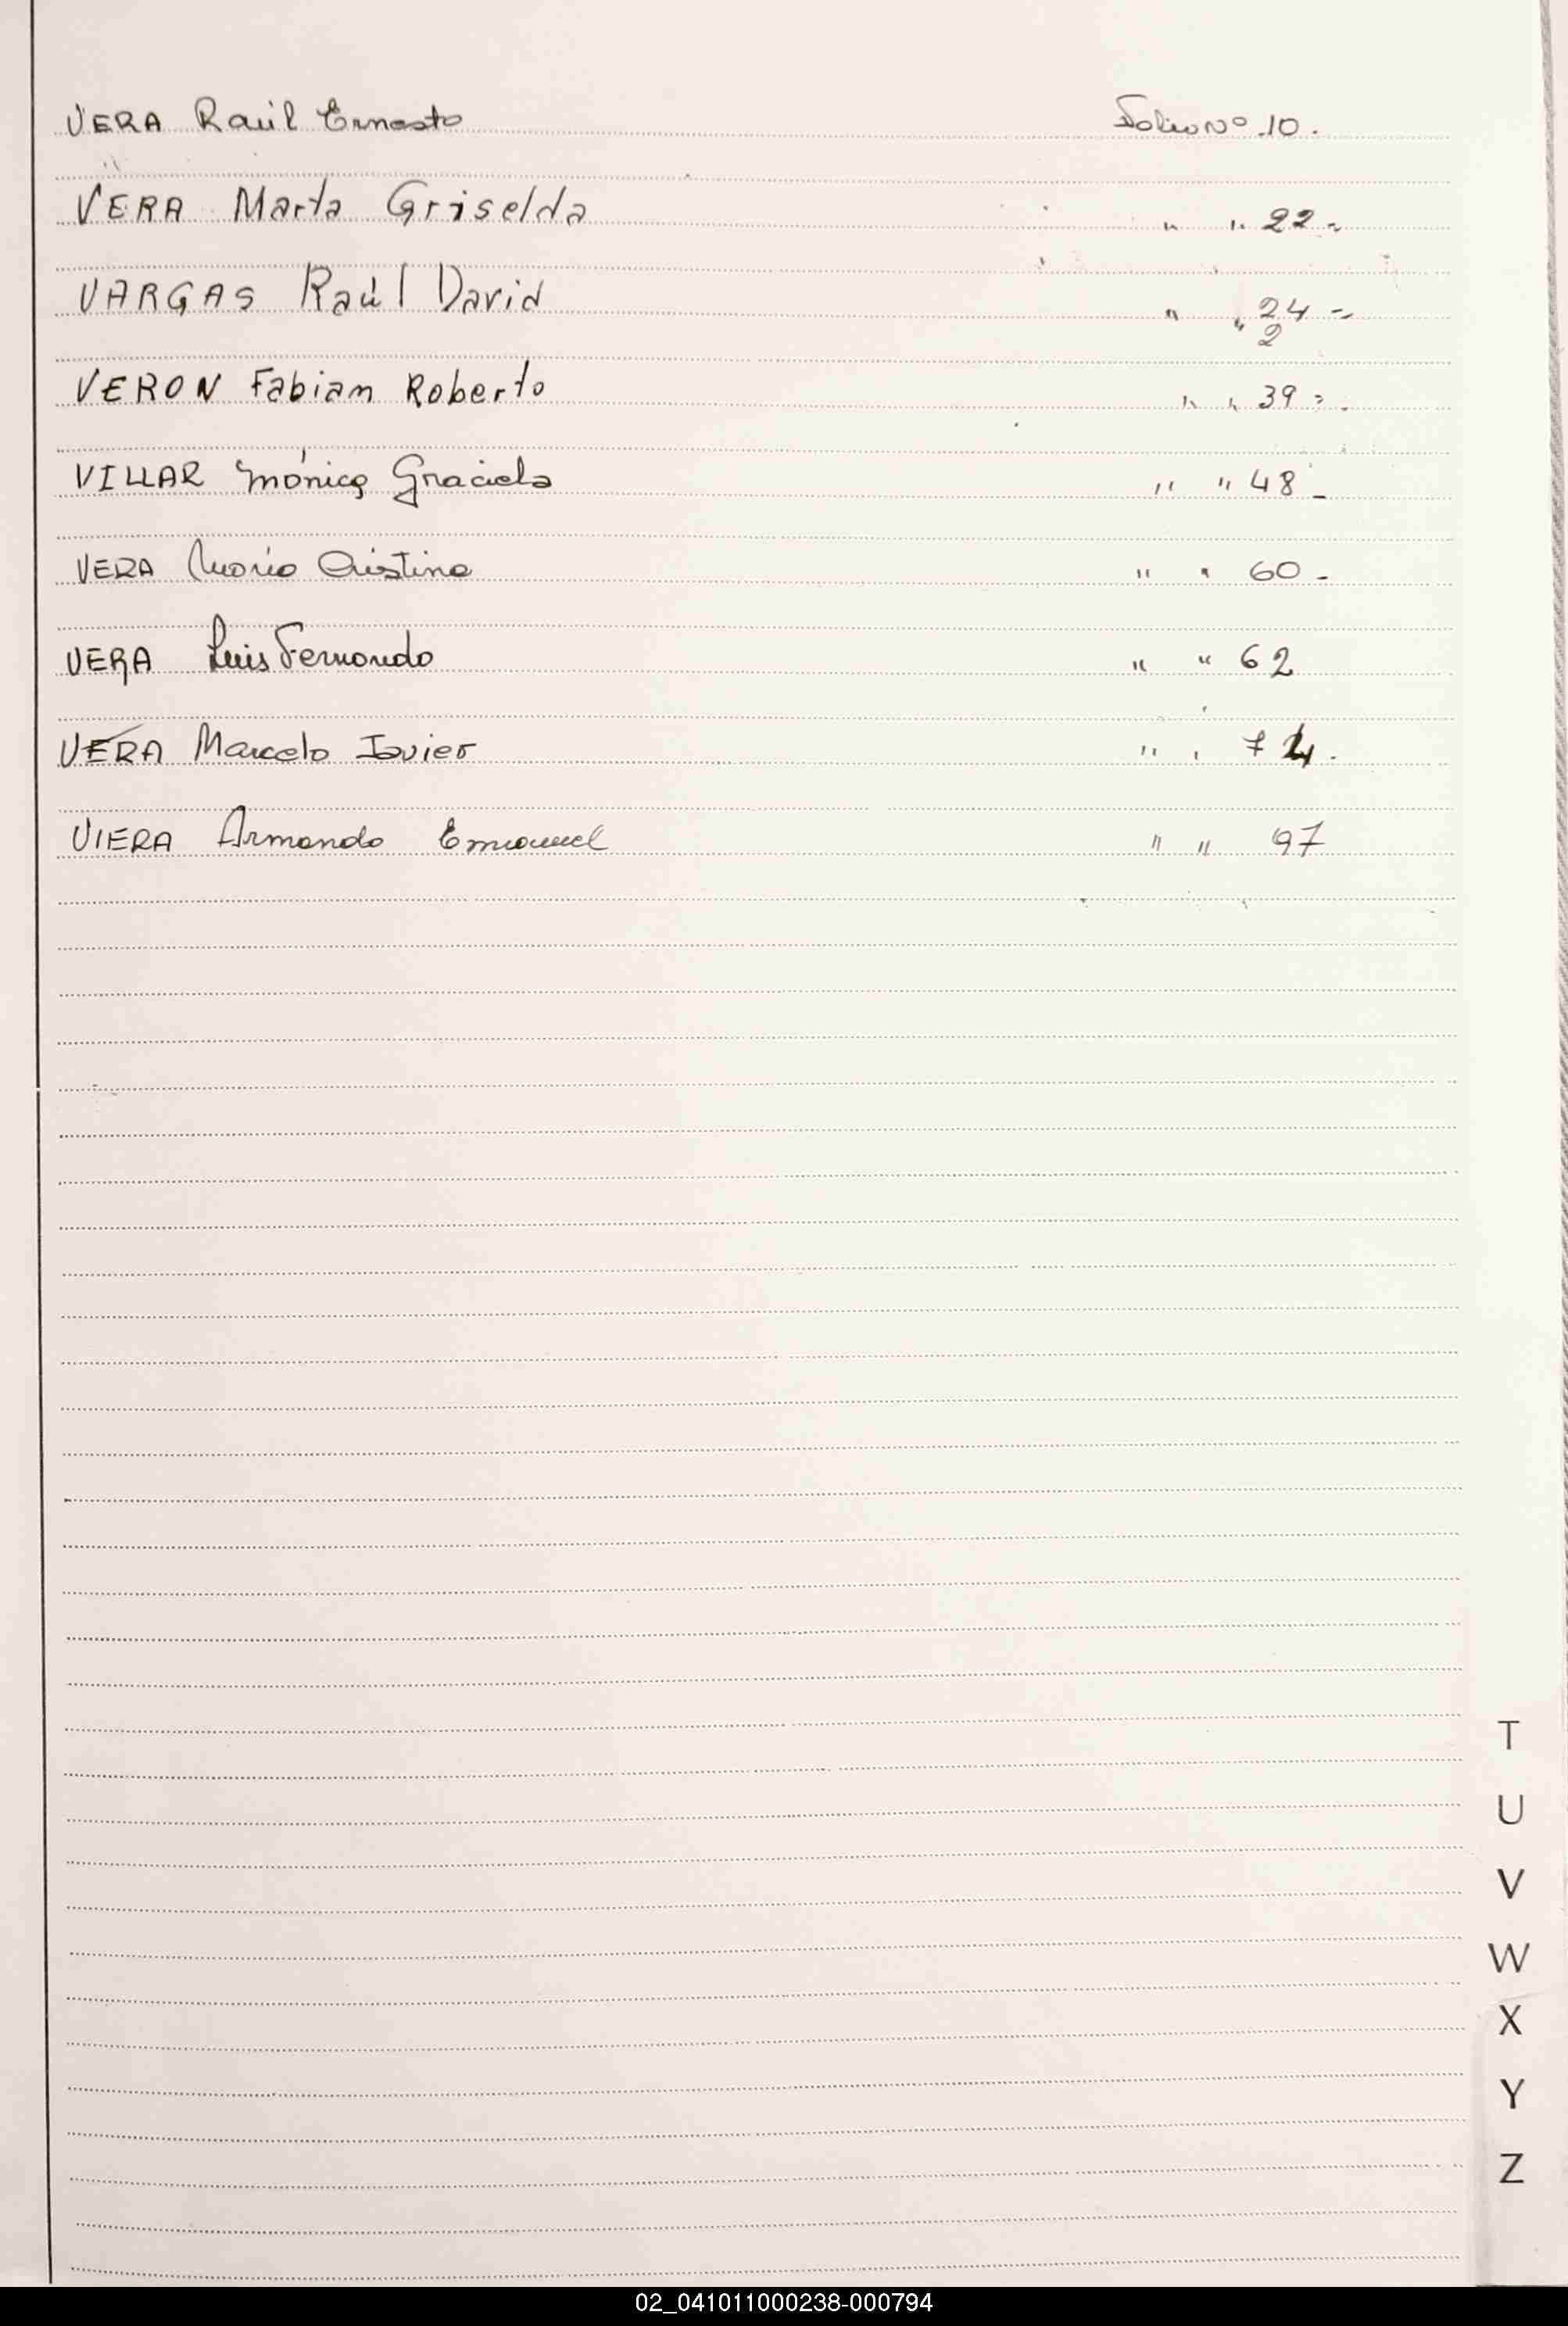 VERA Raúl Ernesto Folio Nº 10.
VERA Marta Griselda " " 22=
VARGAS Raúl David " " 24=
2
VERON Fabian Roberto " " 39=.
VILLAR Mónica Graciela " " 48-
VERA María Cristina " " 60-
VERA Luis Fernando " " 62
VERA Marcelo Javier " " 74.
VIERA Armando Emanuel " " 97
T
U
V
W
X
Y
Z
02_041011000238-000794